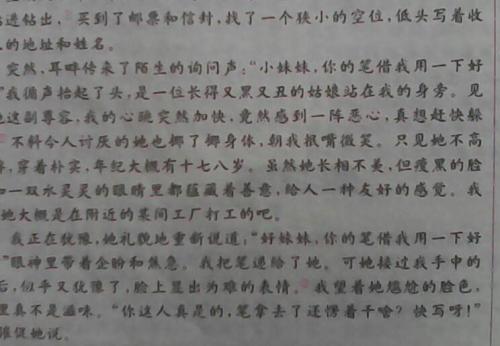 进钻出，买到了邮票和信封，找了一个狭小的空位，低头写着收
的地址和姓名。
突然，耳畔传来了陌生的询问声：“小妹妹，你的笔借我用一下好
”我循声抬起了头，是一位长得又黑又丑的姑娘站在我的身旁。见
她这副尊容，我的心跳突然加快，竟然感到一阵恶心，真想赶快躲
不料令人讨厌的她也挪了挪身体，朝我抿嘴微笑。只见她不高
，穿着朴实，年纪大概有十七八岁。虽然她长相不美，但瘦黑的脸
和一双水灵灵的眼睛里都蕴藏着善意，给人一种友好的感觉。我
她大概是在附近的某间工厂打工的吧。
我正在犹豫，她礼貌地重新说道：“好妹妹，你的笔借我用一下好
”眼神里带着企盼和焦急。我把笔递给了她。可她接过我手中的
后，似乎又犹豫了，脸上显出为难的表情。我望着她尴尬的脸色，
里真不是滋味。“你这人真是的，笔拿去了还愣着干啥？快写呀！”
催促她说。